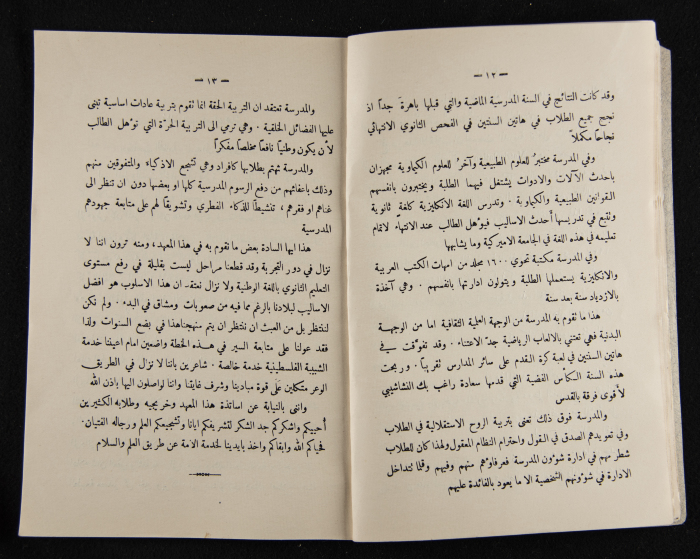 — ١٢ —
وقد كانت النتائج في السنة المدرسية الماضية والتي قبلها باهرة جداً اذ
نجح جميع الطلاب في هاتين السنتين في الفحص الثانوي الانتهائي
نجاحاً مكملاً
وفي المدرسة مختبر للعلوم الطبيعية وآخر للعلوم الكيماوية مجهزان
باحدث الآلات والادوات يشتغل فيهما الطلبة ويختبرون بانفسهم
القوانين الطبيعية والكيماوية . وتدرس اللغة الانكليزية كلغة ثانوية
ونتبع في تدريسها أحدث الاساليب فيؤهل الطالب عند الانتهاء لاتمام
تعليمه في هذه اللغة في الجامعة الاميركية وما يشابهها
وفي المدرسة مكتبة تحوي ١٦٠٠ مجلد من امهات الكتب العربية
والانكليزية يستعملها الطلبة ويتولون ادارتها بانفسهم . وهي آخذة
بالازدياد سنة بعد سنة
هذا ما نقوم به المدرسة من الوجهة العلمية الثقافية اما من الوجهة
البدنية فهي تعتني بالالعاب الرياضية جدّ الاعتناء . وقد تفوّقت في
هاتين السنتين في لعبة كرة القدم على سائر المدارس تقريباً . وربحت
هذه السنة الكأس الفضية التي قدمها سعادة راغب بك النشاشيبي
لأقوى فرقة بالقدس
والمدرسة فوق ذلك تعنى بتربية الروح الاستقلالية في الطلاب
وفي تعويدهم الصدق في القول واحترام النظام المعقول ولهذا كان للطلاب
شطر مهم في ادارة شؤون المدرسة فعرفاؤهم منهم وفيهم وقلما نتداخل
الادارة في شؤونهم الشخصية الا ما يعود بالفائدة عليهم
— ١٣ —
والمدرسة تعتقد ان التربية الحقة انما تقوم بتربية عادات اساسية تبنى
عليها الفضائل الخلقية . وهي ترمي الى التربية الحرّة التي تؤهل الطالب
لأن يكون وطنياً نافعاً مخلصاً مفكراً
والمدرسة تهتم بطلابها كافراد وهي تشجع الاذكياء والمتفوقين منهم
وذلك باعفائهم من دفع الرسوم المدرسية كلها او بعضها دون ان تنظر الى
غناهم او فقرهم ، تنشيطاً للذكاء الفطري وتشويقاً لهم على متابعة جهودهم
المدرسية
هذا ايها السادة بعض ما تقوم به في هذا المعهد، ومنه ترون اننا لا
نزال في دور التجربة وقد قطعنا مراحل ليست بقليلة في رفع مستوى
التعليم الثانوي باللغة الوطنية ولا نزال نعتقد ان هذا الاسلوب هو افضل
الاساليب لبلادنا بالرغم مما فيه من صعوبات ومشاق في البدء . ولم نكن
لننتظر بل من العبث ان ننتظر ان يتم منهجنا هذا في بضع السنوات ولذا
فقد عولنا على متابعة السير في هذه الخطة واضعين امام اعيننا خدمة
الشبيبة الفلسطينية خدمة خالصة . شاعرين باننا لا نزال في الطريق
الوعر متكلين على قوة مبادئنا وشرف غايتنا واننا لواصلون اليها باذن الله
وانني بالنيابة عن اساتذة هذا المعهد وخريجيه وطلابه الكثيرين
أحييكم واشكركم جد الشكر لتشريفكم ايانا وتشجيعكم العلم ورجاله الفتيان.
فحياكم الله وابقاكم واخذ بايدينا لخدمة الامة عن طريق العلم والسلام